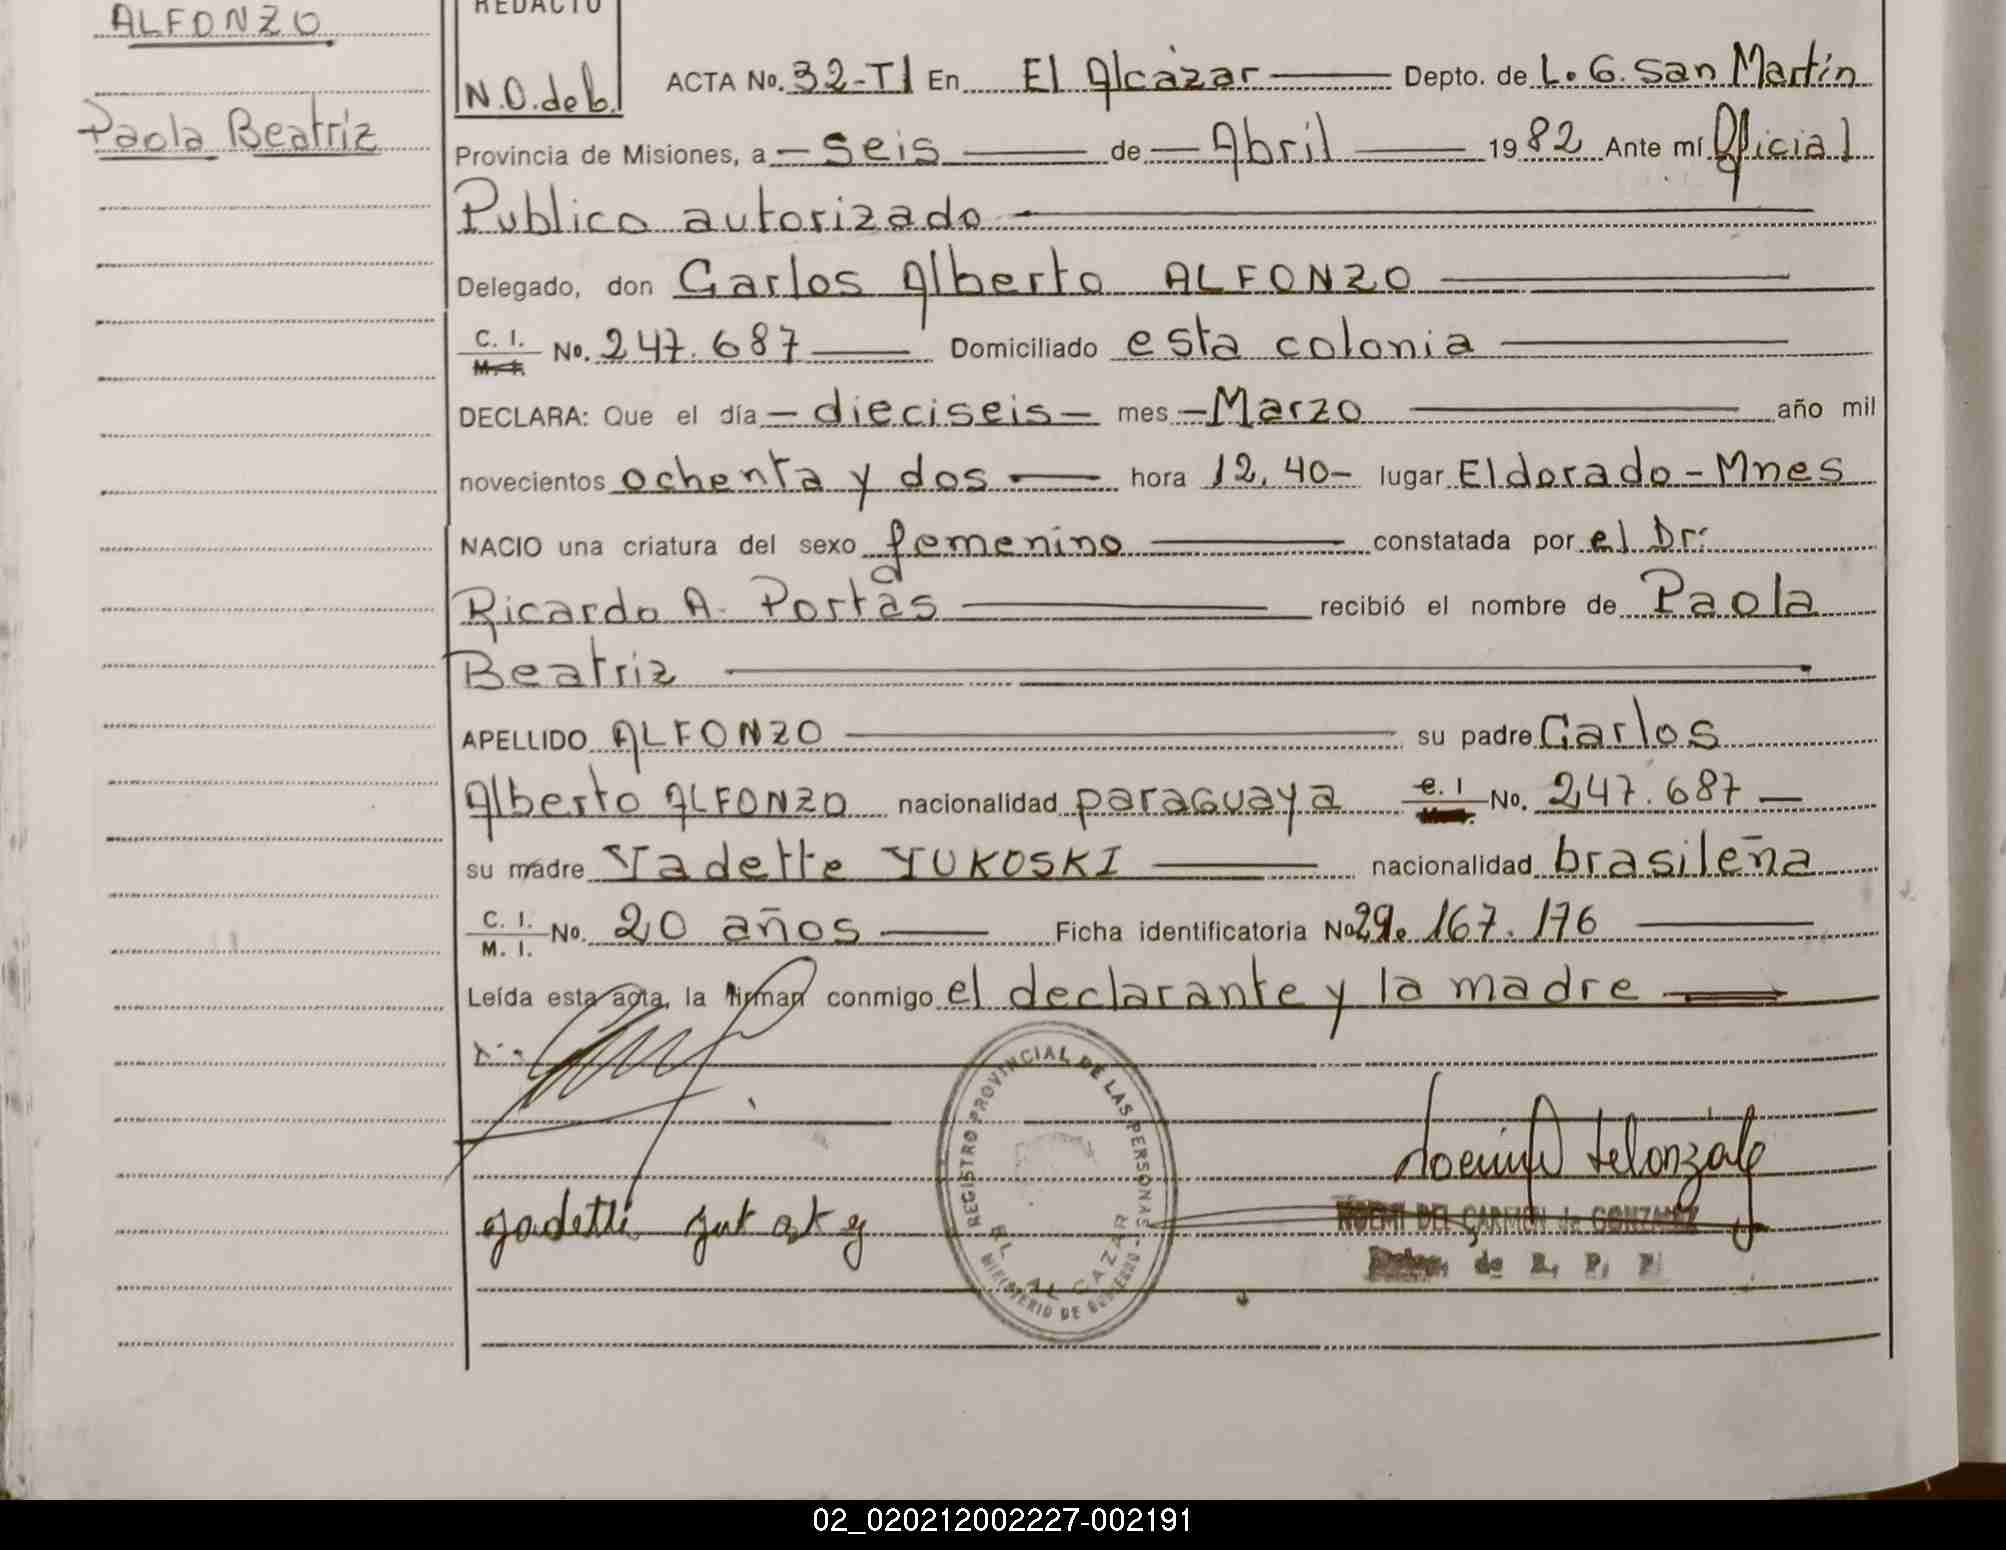 ALFONZO
REDACTO
N.O.deb.
ACTA No. 32-T1 En El Alcázar Depto. de L. G. San Martín
Paola Beatriz
Provincia de Misiones, a - seis de - Abril 1982 Ante mí Oficial
Publico autorizado
Delegado, don Carlos Alberto ALFONZO
C. I. No. 247.687 Domiciliado esta colonia
M. I.
DECLARA: Que el día - dieciseis - mes - Marzo año mil
novecientos ochenta y dos hora 12,40- lugar Eldorado - Mnes
NACIO una criatura del sexo femenino constatada por el Dr:
Ricardo A. Portas recibió el nombre de Paola
Beatriz
APELLIDO ALFONZO su padre Carlos
Alberto ALFONZO nacionalidad paraguaya C. I No. 247.687 -
su madre Yadette YUKOSKI nacionalidad brasileña
C. I. No. 20 años Ficha identificatoria No 29.167.176
M. I.
Leída esta acta, la firman conmigo el declarante y la madre
REGISTRO PROVINCIAL DE LAS PERSONAS
EL ALCAZAR
MINISTERIO DE GOBIERNO
NOEMI DEL CARMEN de GONZALEZ
Deleg. de R. P. P.
02_020212002227-002191